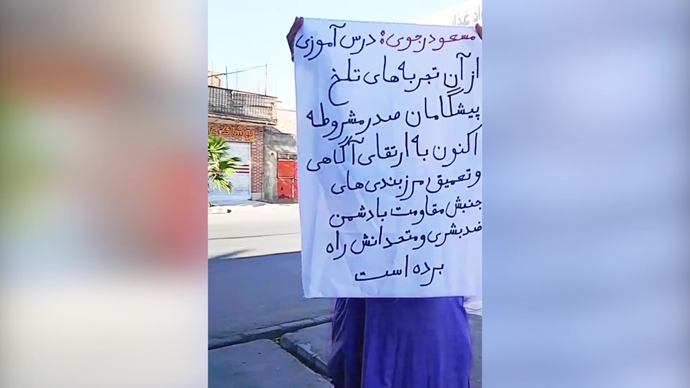 مسعود رجوی: درس آموزی
از آن تجربه های تلخ
پیشگامان صدر مشروطه
اکنون به ارتقای آگاهی
و تعمیق مرزبندی های
جنبش مقاومت با دشمن
ضد بشری و متحدانش راه
برده است
پوشاک